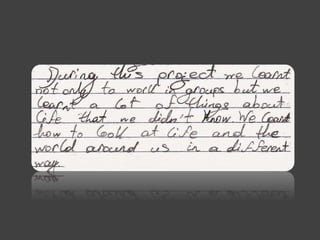 During this project we learnt
not only to work in groups but we
learnt a lot of things about
life that we didn't know. We learnt
how to look at life and the
world around us in a different
way.